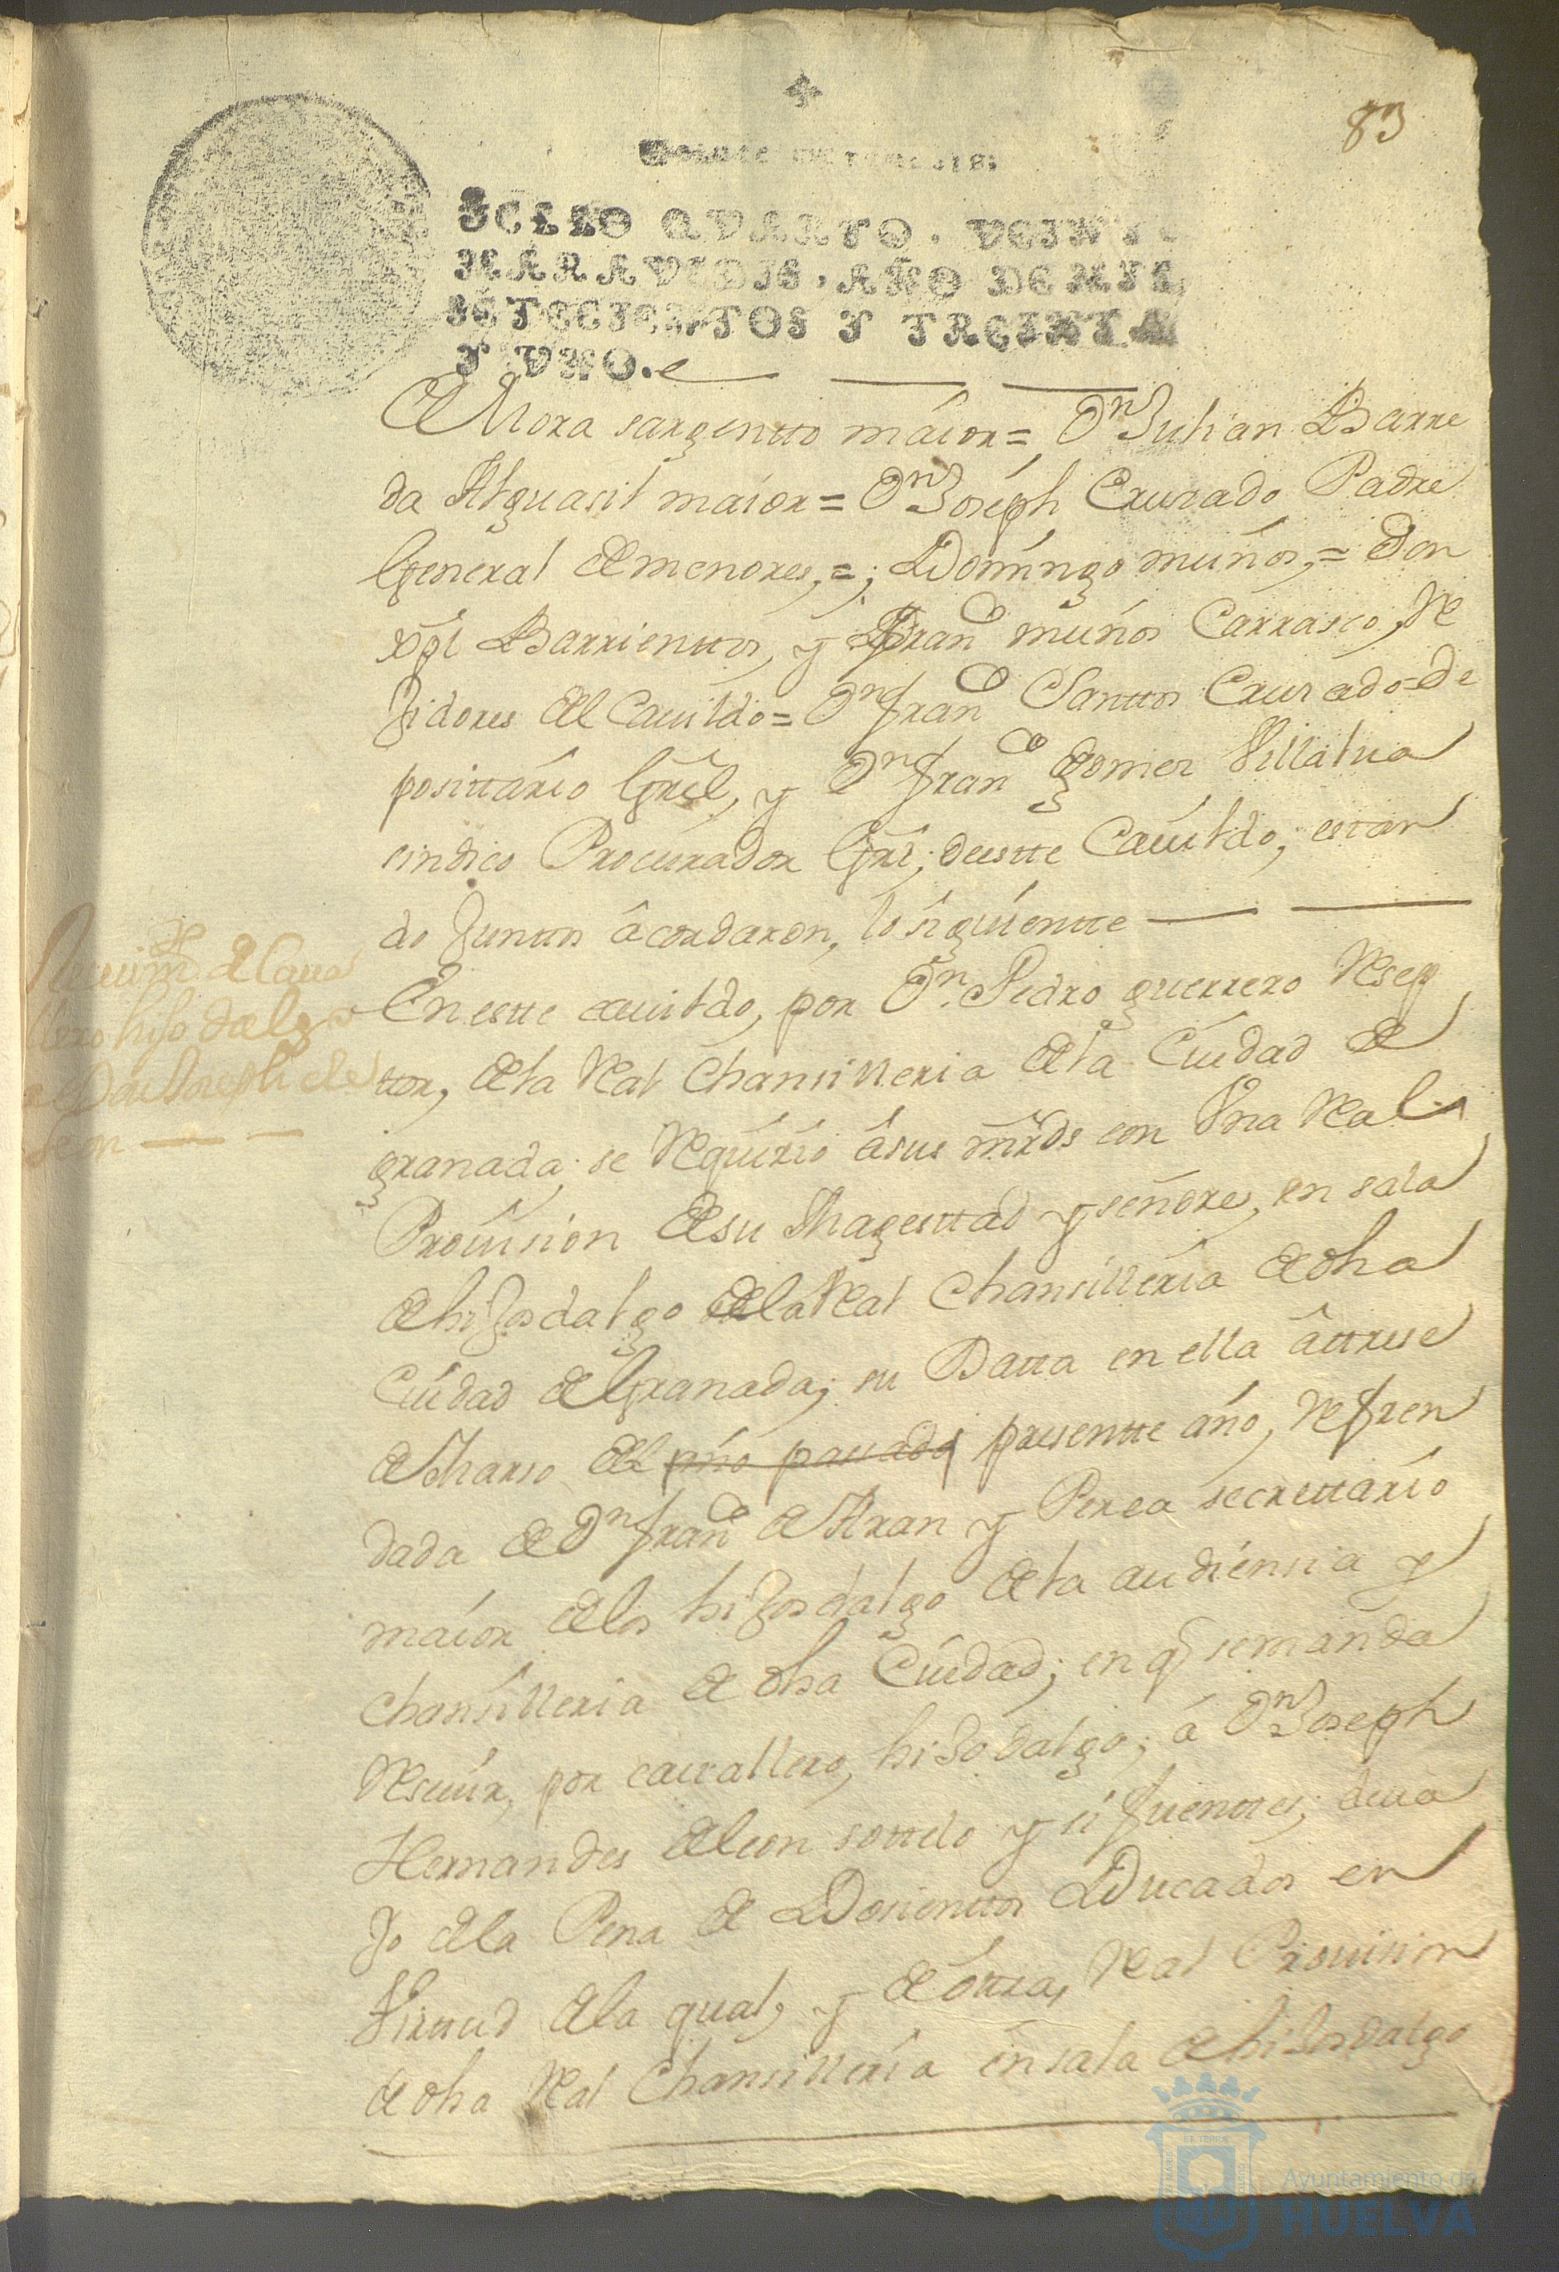 83
SELLO QVARTO. VEINTE
MARAVEDIS, AÑO DE MIL
SETECIENTOS Y TREINTA
Y VNO.
de Mora sargentto máior= Dn Julian Barre
da Alguasil maior= Dn Joseph Cruzado Padre
General de menores,=; Domingo muños,= Don
Xpl Barrienttos, y Franco muños Carrasco, Re
jidores del Cavildo= Dn Franco Santtos Cruzado De
posittario Gral, y Dn Franco gomez Villalva
sindico Procurador Gral; deestte Cavildo; estan
do Junttos acordaron, lo siguientte
En estte cavildo, por Dn Pedro guerrero Resep
ttor, de la Real Chansilleria de la Ciudad de
granada; se Requirio a sus mrds con Vna Real
Provision de su Magesttad y señores, en sala
de hijosdalgo de la Real Chansilleria de dha
Ciudad de Granada; su Datta en ella a ttrese
de Marso del año passado presentte año, Refren
dada de Dn Franco de Aran y Perea secrettario
máior de los hijosdalgo de la audiensia y
chansilleria de dha Ciudad; en q se manda
Resivir, por cavallero, hijodalgo; á Dn Joseph
Hernandes de leon sottelo y sifuenttes; deva
Jo de la Pena de Dosienttos Ducados en
Virttud de la qual, y de ottra, Real Provision
de dha Real Chansilleria en sala de hijosdalgo
Resivimto de Cava
llero hijo dalgo
a Don Joseph de
leon
Ayuntamiento de
HUELVA